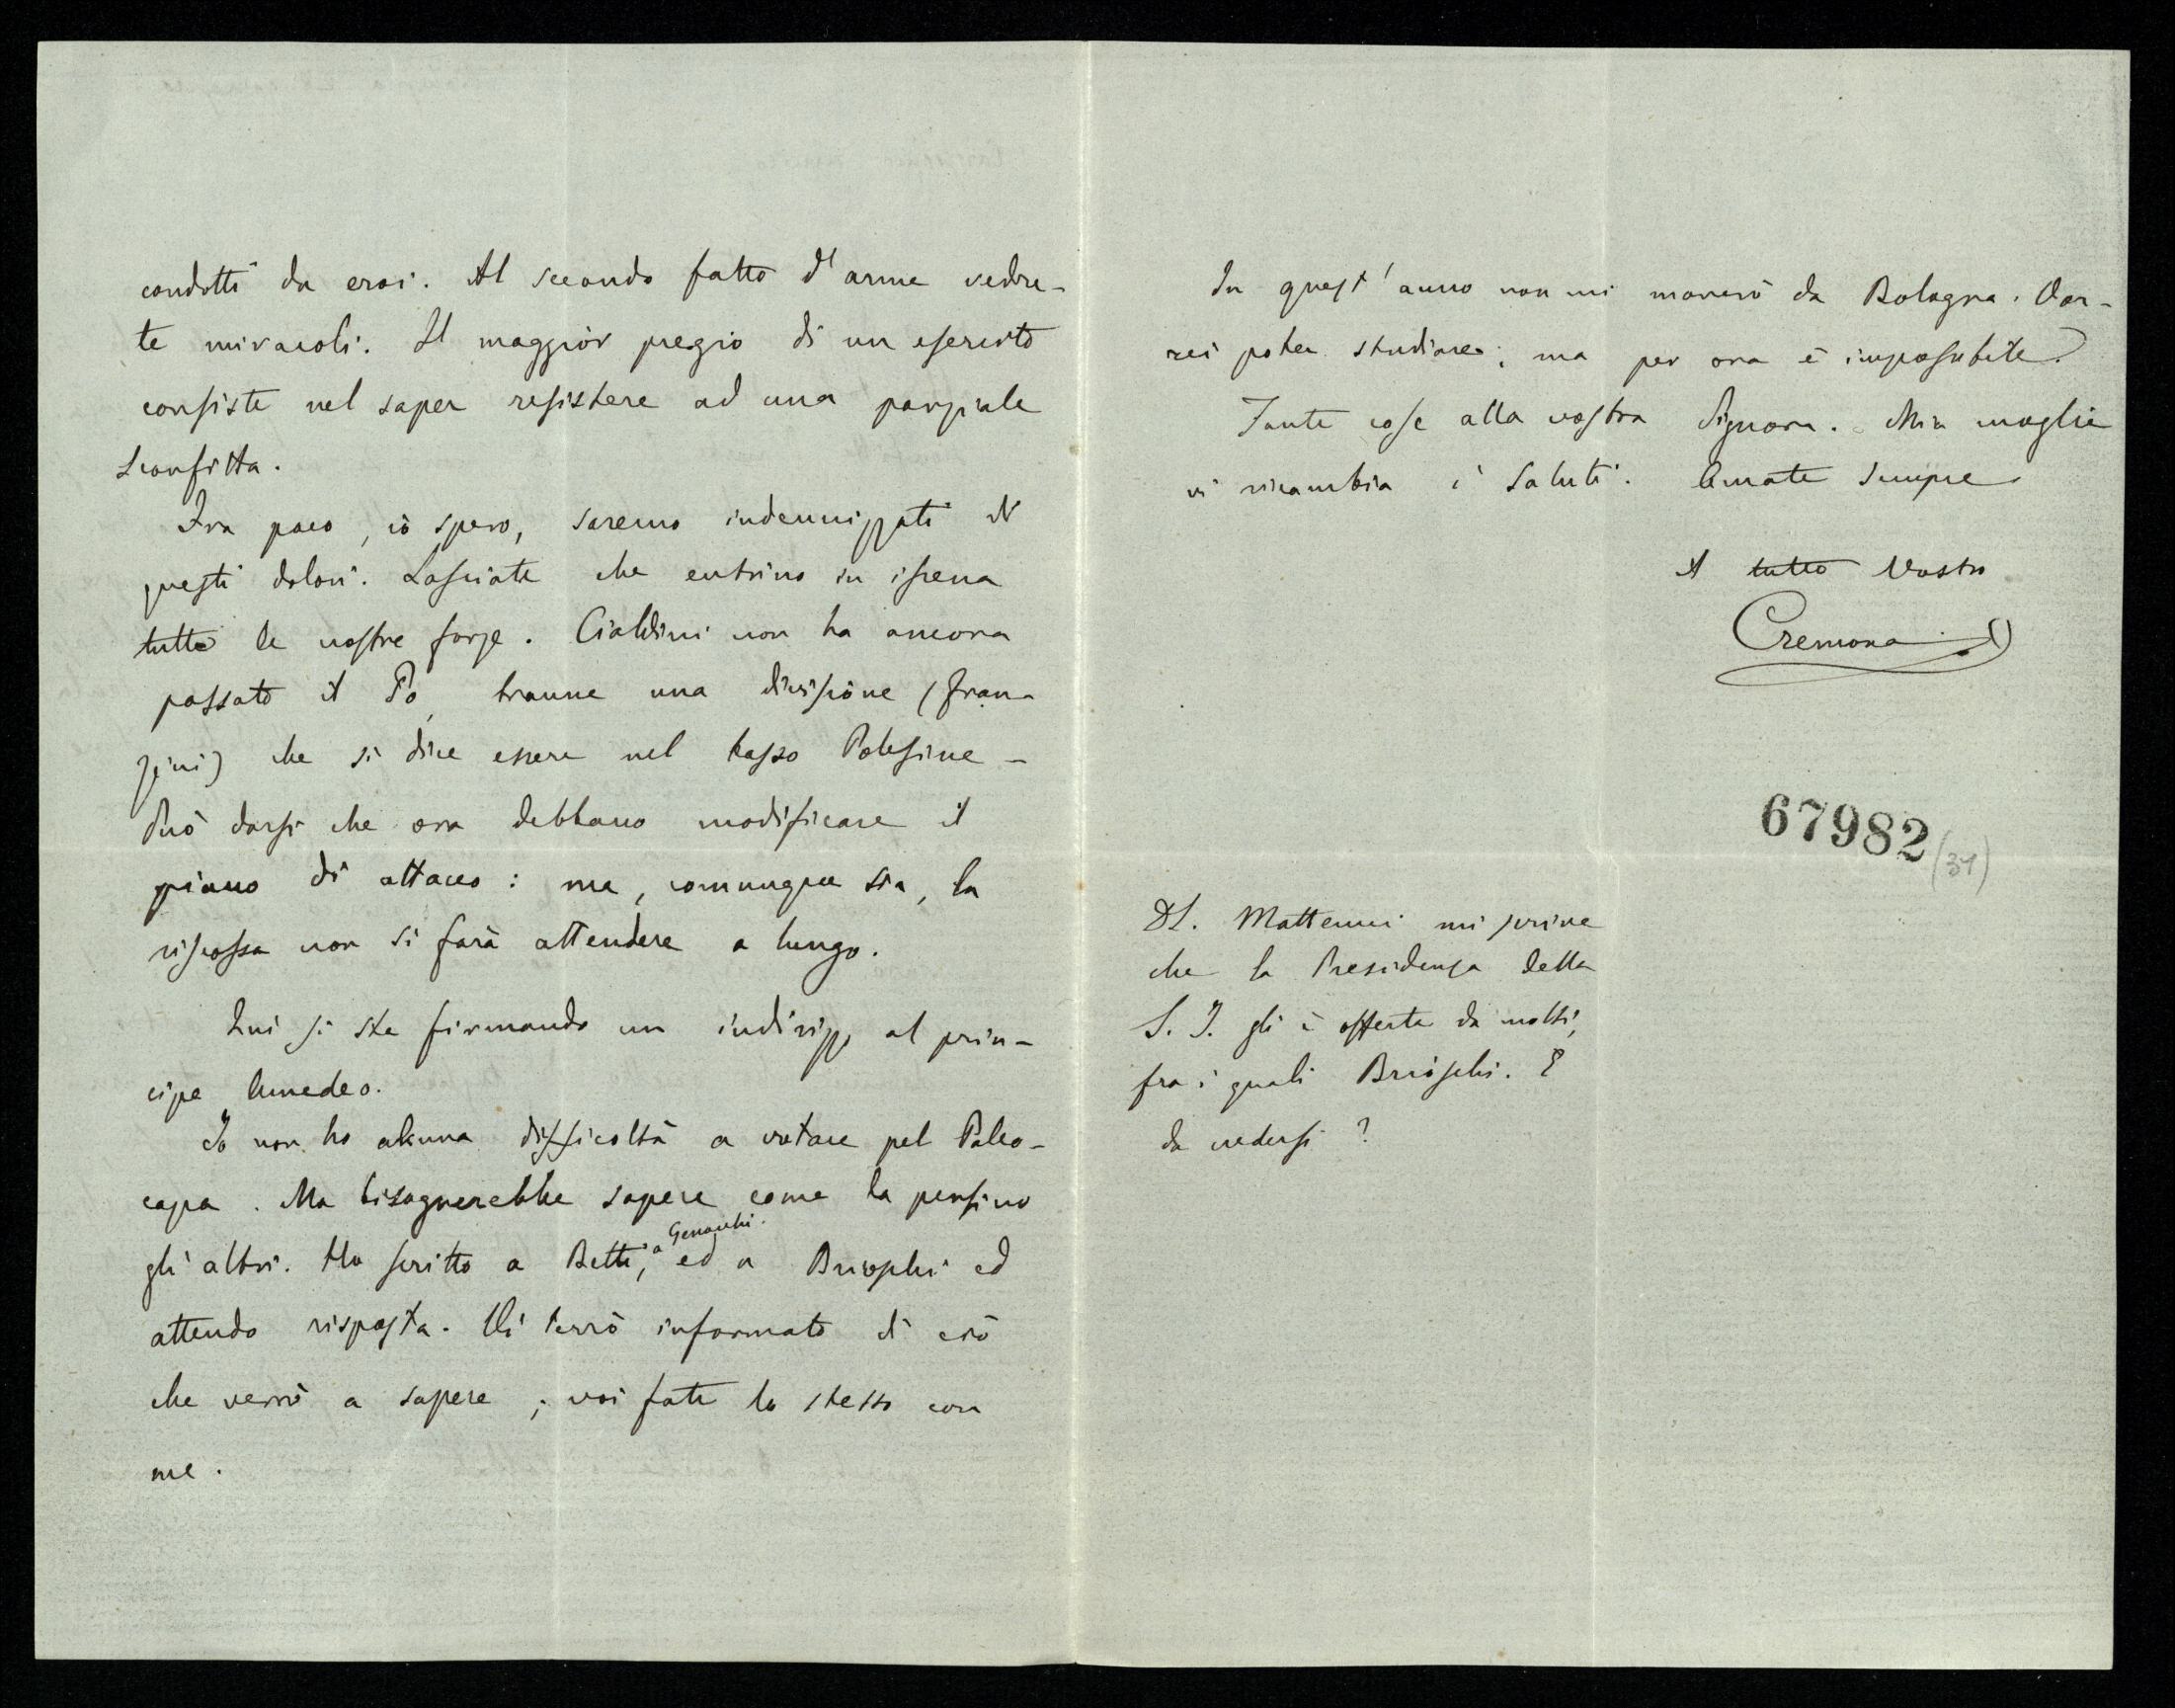 condotti da eroi. Al secondo fatto d'arme vedre-
te miracoli. Il maggior pregio di un esercito
consiste nel saper resistere ad una parziale
sconfitta.
Fra poco, io spero, saremo indennizzati di
questi dolori. Lasciate che entrino in iscena
tutte le nostre forze. Cialdini non ha ancora
passato il Po, tranne una divisione (Fran-
zini) che si dice essere nel basso Polesine –
Può darsi che ora debbano modificare il
piano di attacco: ma, comunque sia, la
riscossa non si farà attendere a lungo.
Qui si sta firmando un indirizzo al prin-
cipe Amedeo.
Io non ho alcuna difficoltà a votare pel Paleo-
capa. Ma bisognerebbe sapere come la pensino
gli altri. Ho scritto a Betti, a Genocchi. ed a Brioschi ed
attendo risposta. Vi terrò informato di ciò
che verrò a sapere; voi fate lo stesso con
me.
In quest'anno non mi moverò da Bologna. Vor-
rei poter studiare; ma per ora è impossibile.
Tante cose alla vostra Signora. Mia moglie
vi ricambia i saluti. Amate sempre
Il tutto Vostro
Cremona
67982
(31)
PS. Matteucci mi scrive
che la Presidenza della
S. I. gli è offerta da molti,
fra i quali Brioschi. È
da credersi?